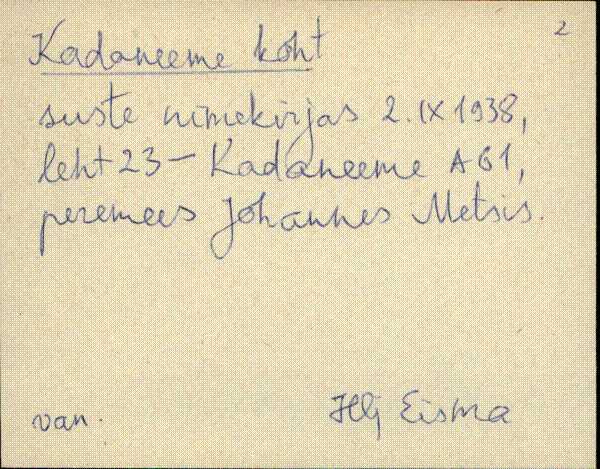 2
Kadaneeme koht
suste nimekirjas 2. IX 1938,
leht 23 – Kadaneeme A61,
peremees Johannes Metsis.
van. Hlj Eisma